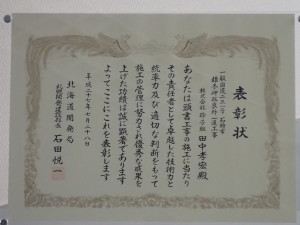 表彰状
一般国道二三一号 石狩市
株式会社
田中孝宏殿
あなたは頭書工事の施工に当たり
その責任者として卓越した技術力と
統率力及び適切な判断をもって
施工の管理に努力され優秀な成果を
上げた功績は誠に顕著であります
よってここにこれを表彰します
平成二十七年七月二十八日
北海道開発局
札幌開発建設部長 石田悦一